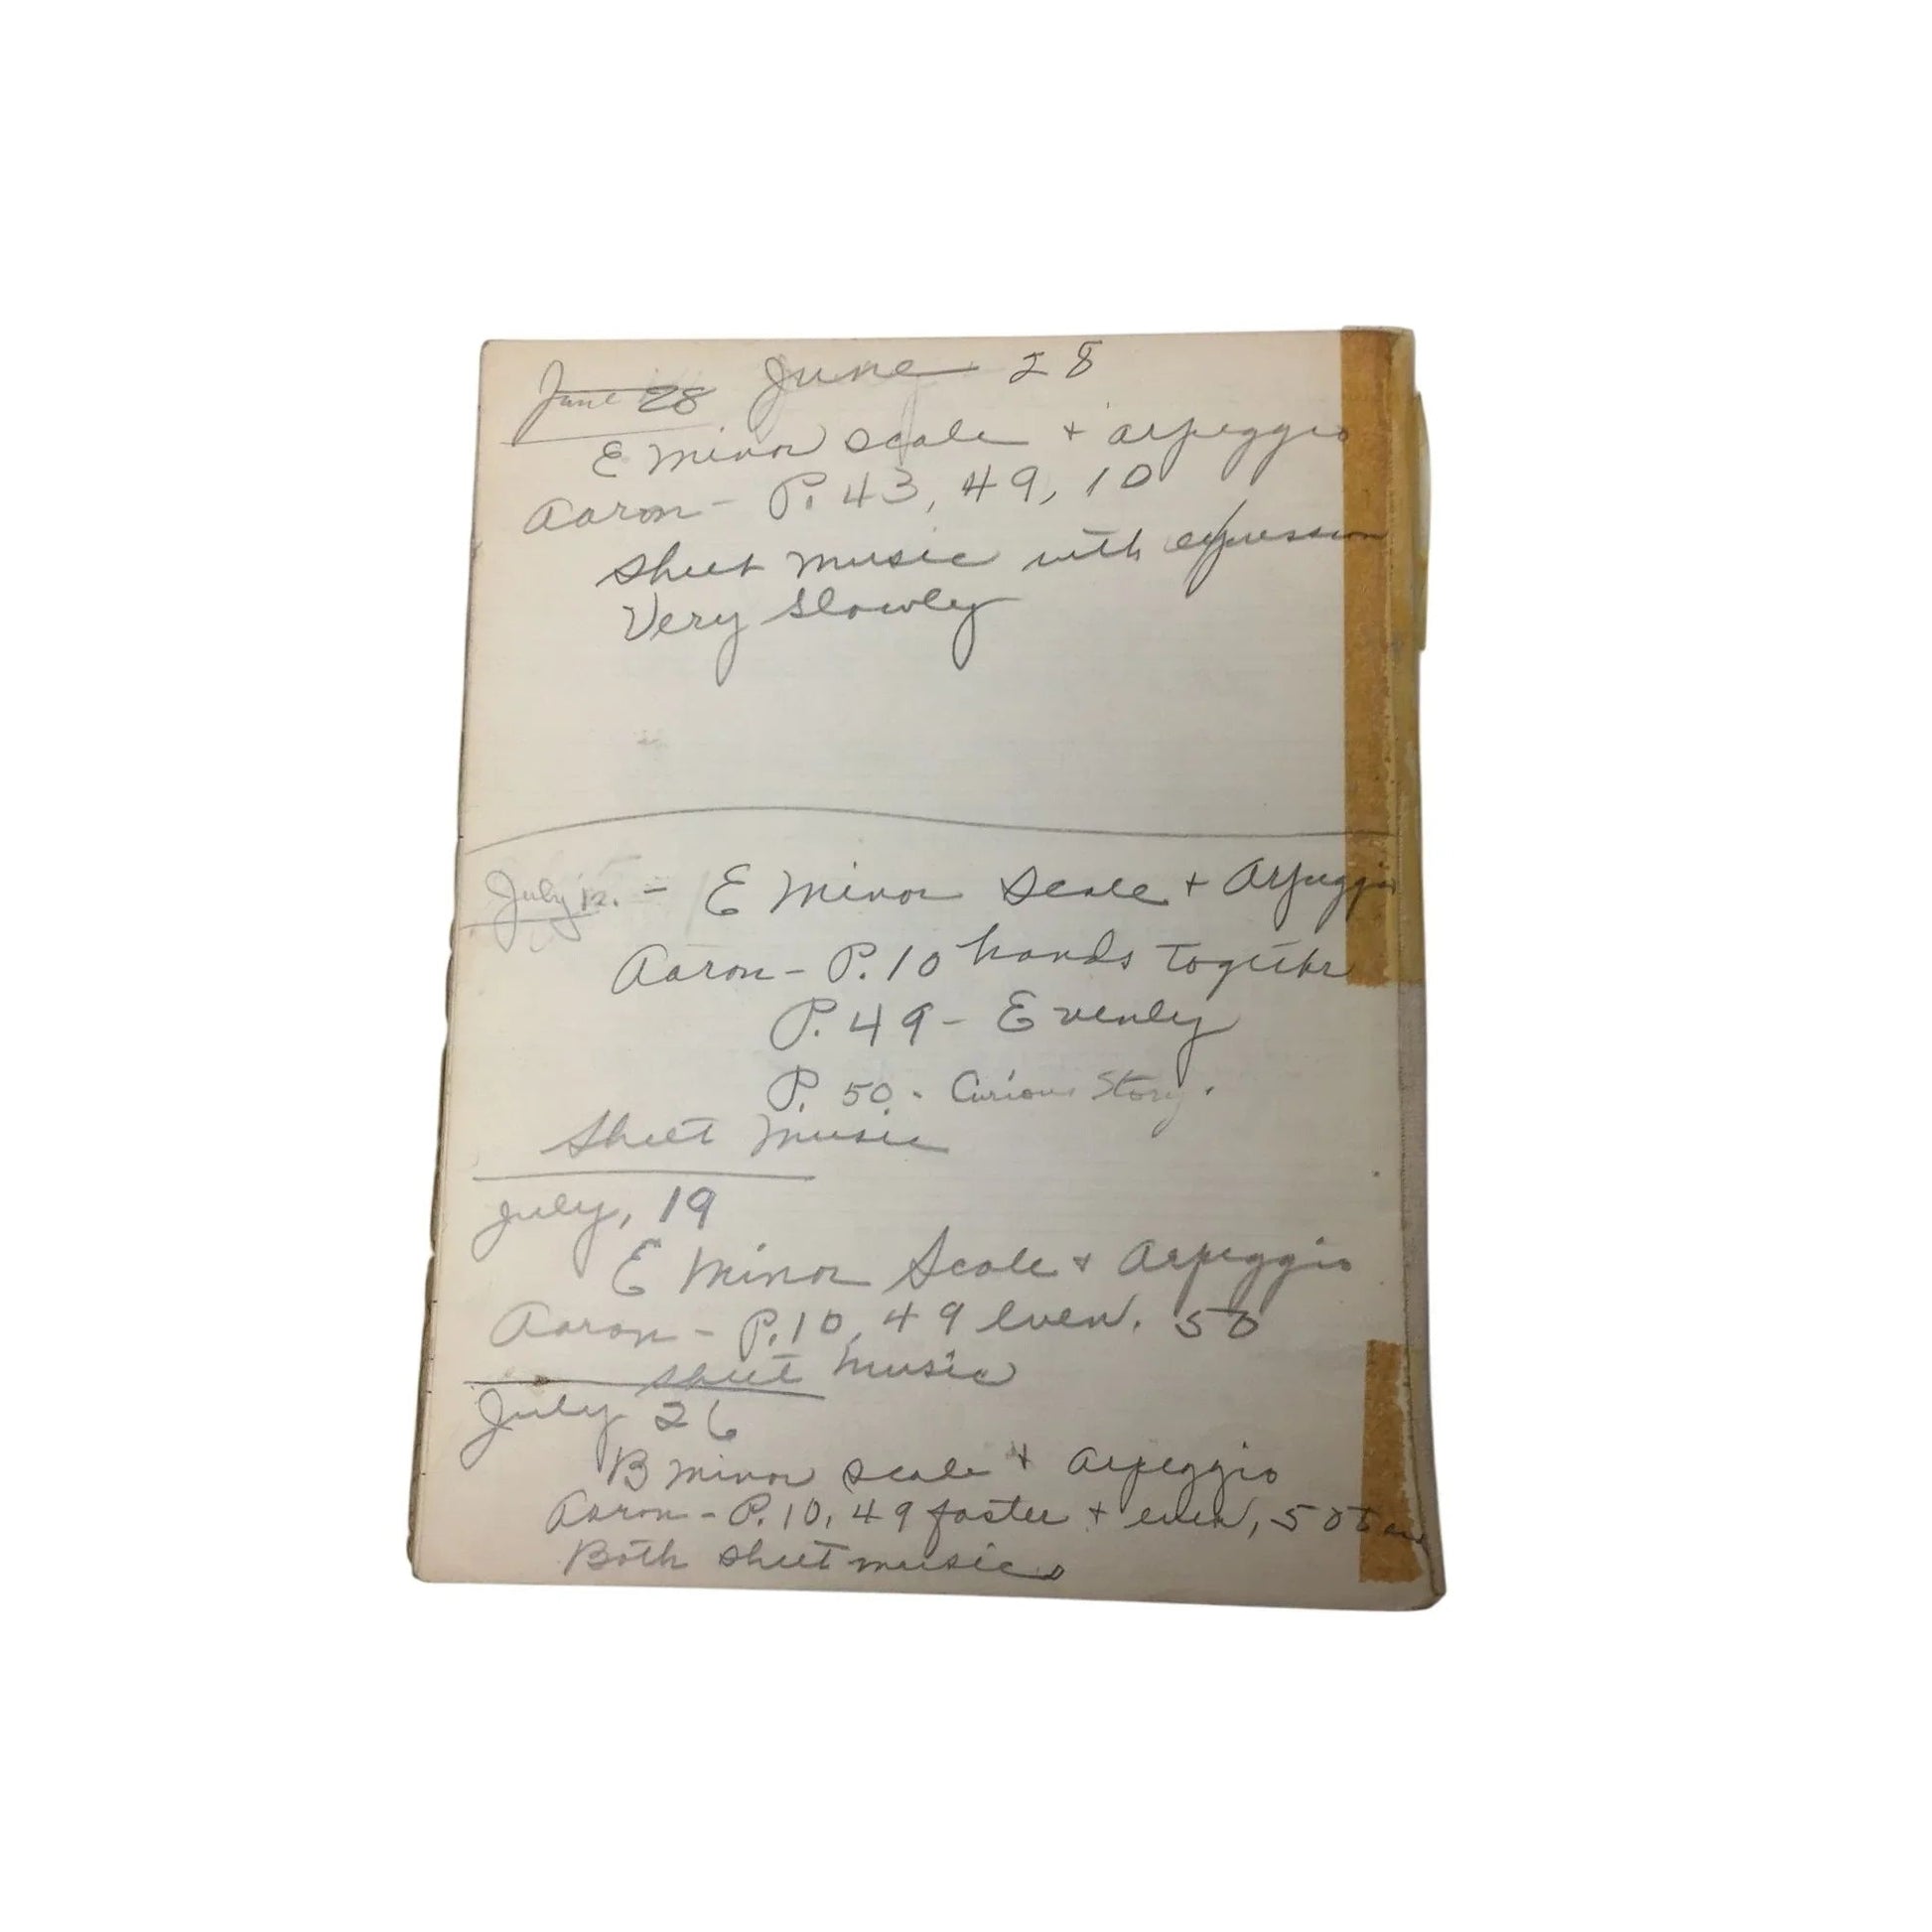 June 28 June 28
E minor scale + arpeggio
Aaron - P. 43, 49, 10
sheet music with expression
Very slowly
July 12. - E Minor Scale + Arpeggio
Aaron - P. 10 hands together
P. 49 - Evenly
P. 50. - Curious Story.
Sheet Music
July, 19
E Minor Scale + Arpeggio
Aaron - P. 10, 49 even. 50
sheet music
July 26
B minor scale + arpeggio
Aaron - P. 10, 49 faster + even, 50
Both sheet musics